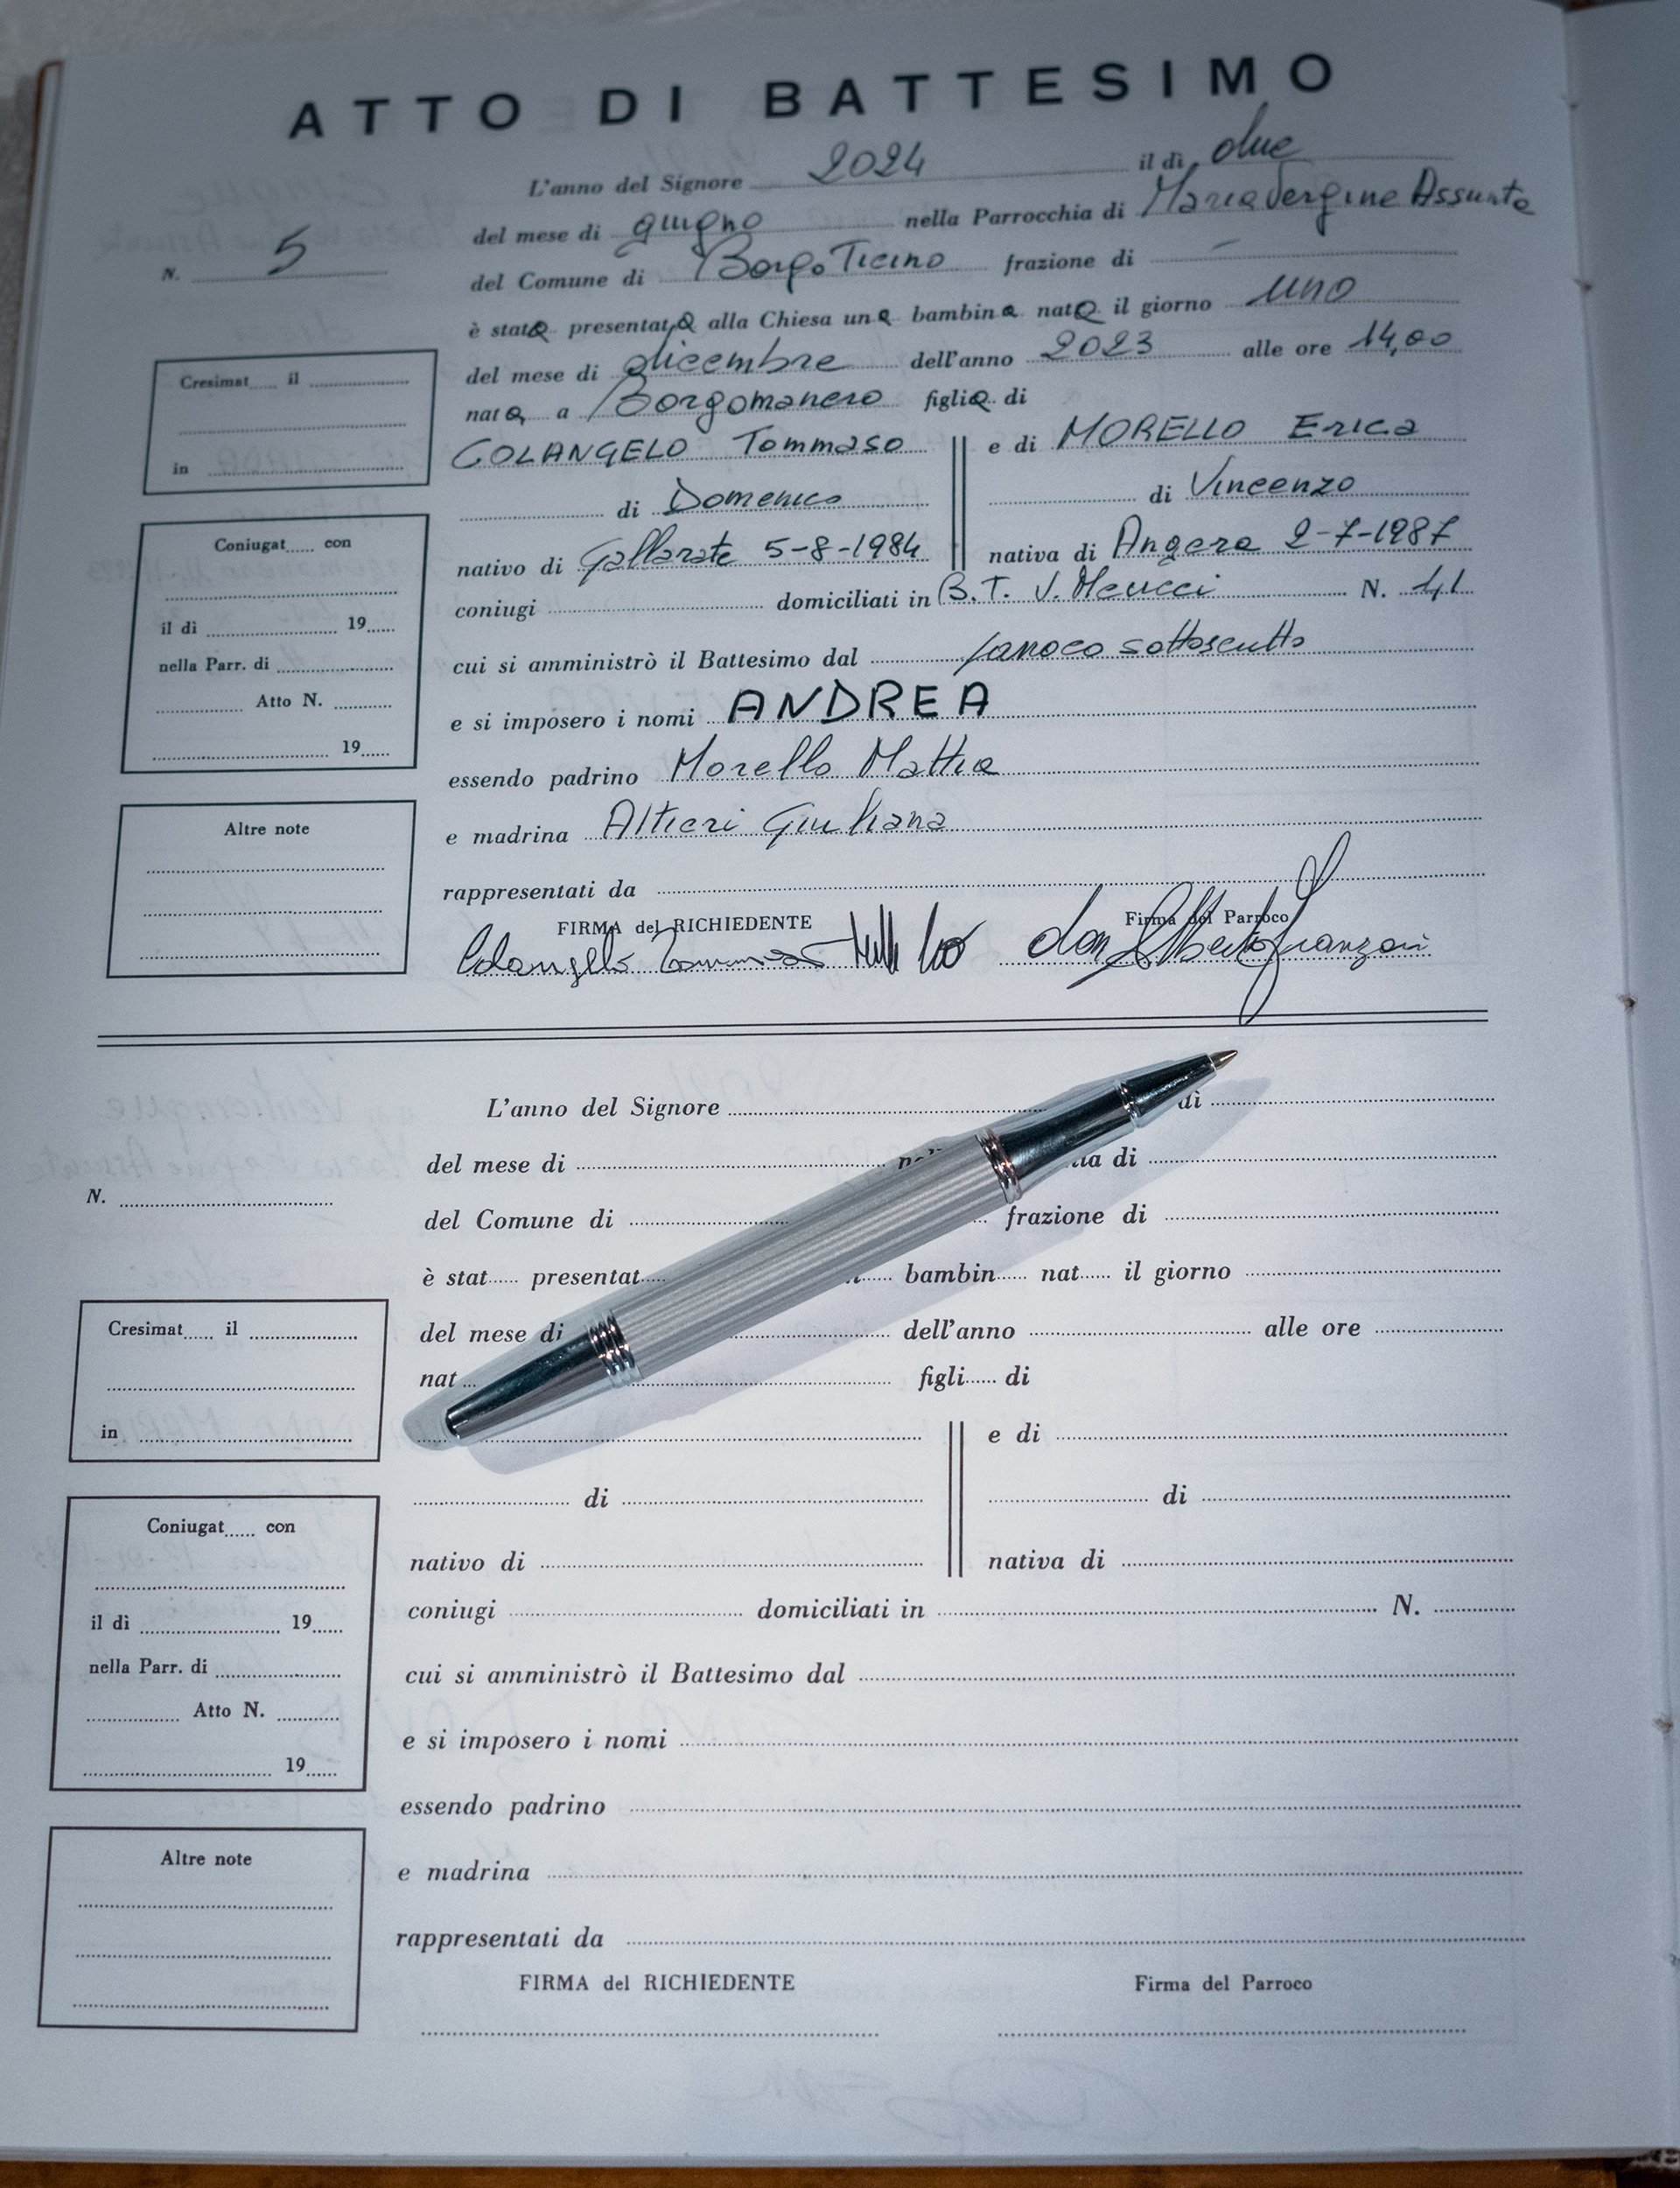 ATTO DI BATTESIMO
L'anno del Signore 2024 il dì due
del mese di giugno nella Parrocchia di Maria Vergine Assunta
N. 5
del Comune di Borgo Ticino frazione di –
è stata presentata alla Chiesa una bambina nata il giorno uno
del mese di dicembre dell'anno 2023 alle ore 14,00
nata a Borgomanero figlia di
COLANGELO Tommaso e di MORELLO Erica
di Domenico di Vincenzo
nativo di Gallarate 5-8-1984 nativa di Angera 2-7-1987
coniugi domiciliati in B.T. V. Meucci N. 41
cui si amministrò il Battesimo dal parroco sottoscritto
e si imposero i nomi ANDREA
essendo padrino Morello Mattia
e madrina Altieri Giuliana
rappresentati da
FIRMA del RICHIEDENTE Firma del Parroco
Colangelo Tommaso don Alberto Franzosi
Cresimat il
in
Coniugat con
il dì 19
nella Parr. di
Atto N.
19
Altre note
L'anno del Signore dì
del mese di di
N.
del Comune di frazione di
è stat presentat bambin nat il giorno
del mese di dell'anno alle ore
nat figli di
e di
di di
nativo di nativa di
coniugi domiciliati in N.
cui si amministrò il Battesimo dal
e si imposero i nomi
essendo padrino
e madrina
rappresentati da
FIRMA del RICHIEDENTE Firma del Parroco
Cresimat il
in
Coniugat con
il dì 19
nella Parr. di
Atto N.
19
Altre note